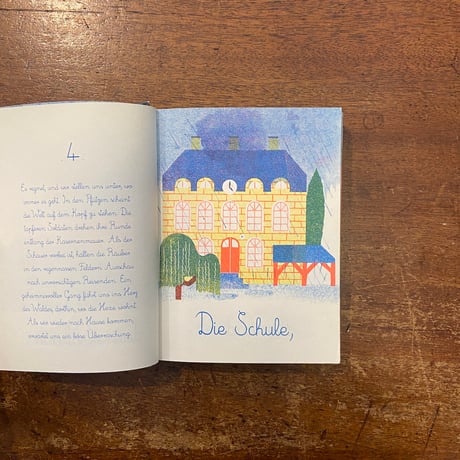 4
Es regnet, und wir stellen uns unter, wo
immer es geht. In den Pfützen scheint
die Welt auf dem Kopf zu stehen. Die
tapferen Soldaten drehen ihre Runde
entlang der Kasernenmauer. Als der
Schauer vorbei ist, halten die Räuber
in den regennassen Feldern Ausschau
nach unvorsichtigen Reisenden. Ein
geheimnisvoller Gang führt uns ins Herz
des Waldes, dorthin, wo die Hexe wohnt.
Als wir wieder nach Hause kommen,
erwartet uns ein böse Überraschung.
Die Schule,